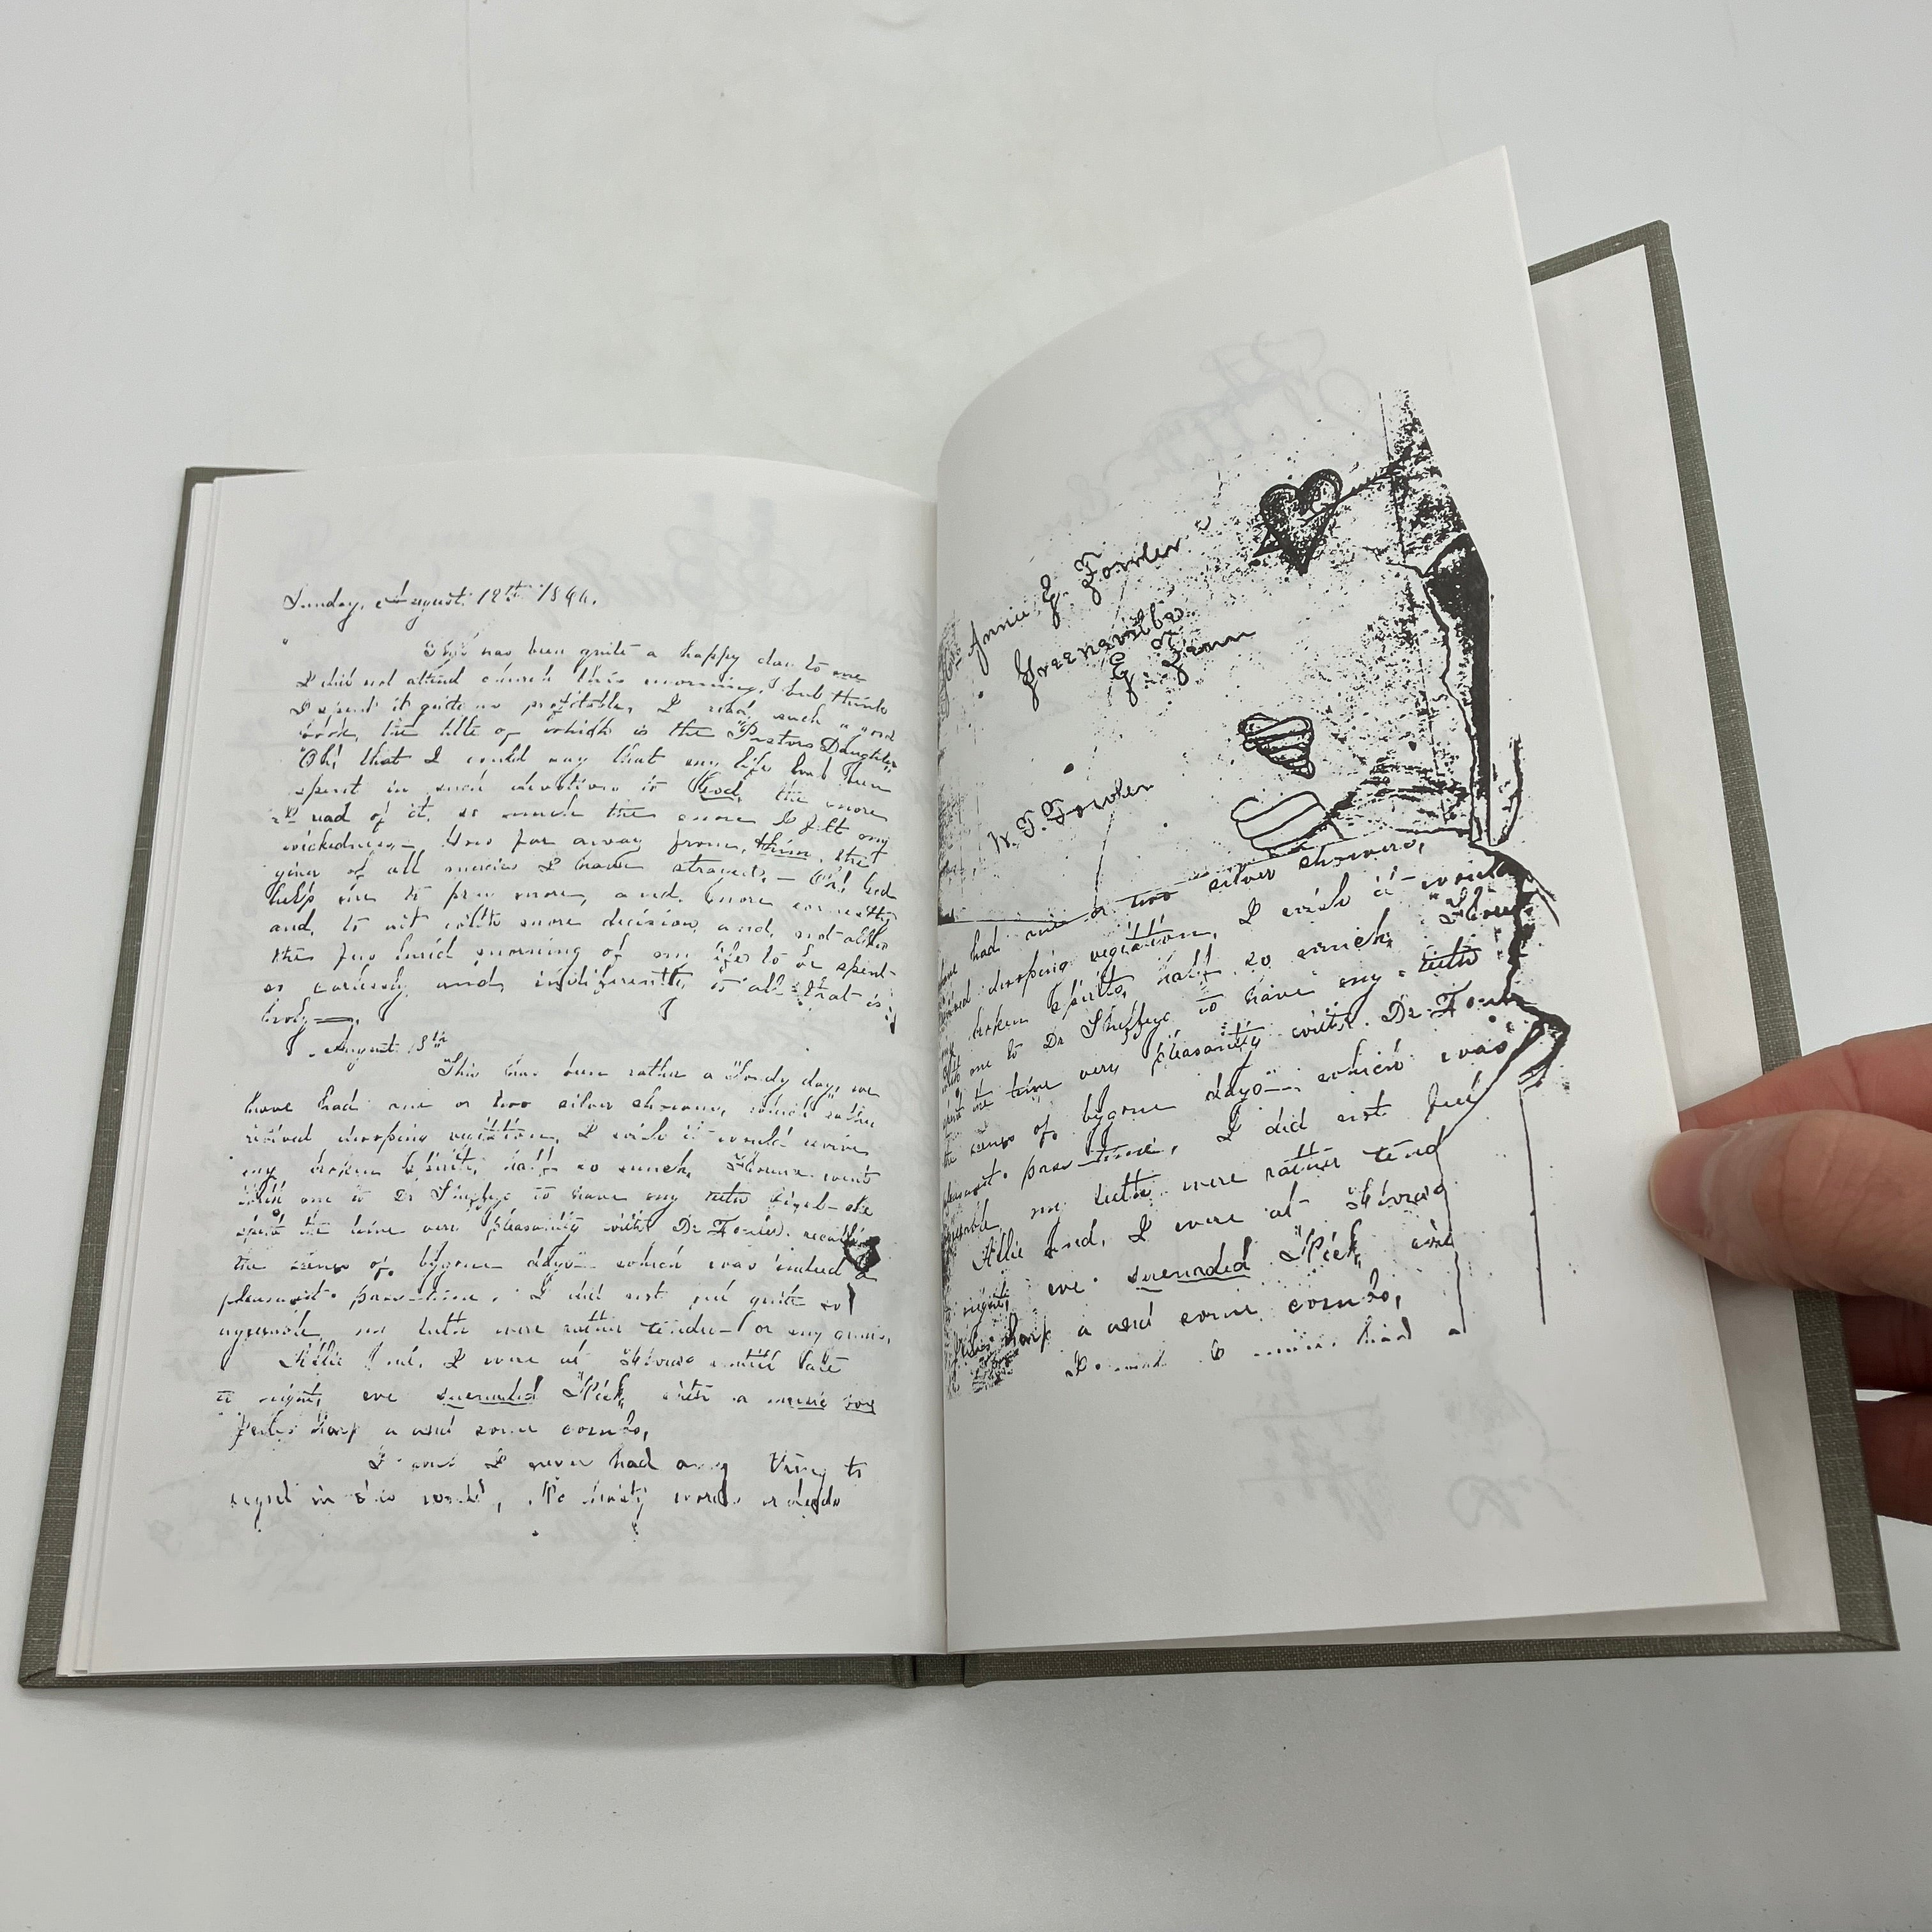 Sunday, August. 12th 1866.
has been quite a happy day to me
I did not attend church this morning, but think
I spent it quite as profitable, I read such a good
book, the title of which is the "Pastors Daughter"
"Oh! that I could say that my life had been
spent in such devotion to God, the more
I read of it, so much the more I felt my
wickedness— How far away from, Him, the
giver of all mercies I have strayed,— Oh! God
help me to pray more, and more earnestly
and, to act with more decision, and, not allow
the morning of my life to be spent
so carlessly and, indifferently to all that is
holy—
August 13th
This has been rather a day, we
have had one or two silver showers, which rather
revived drooping vegitation, I wish it would revive
my broken spirits, half so much, went
with me to Dr to have my teeth she
spent the time very pleasantly with Dr
the scenes of bygone days— which was indeed a
pleasant pass-time. I did not feel quite so
agreeable, my teeth were rather tender—
Allie and, I were at until late
to night, we serenaded "Pick" with a music box
Jews harp and some combs,
I wish I never had any thing to
regret in this world, No hasty words or deeds
Annie E. Fowler
Greeneville
E. Tenn
W. T. Fowler
have had one or two silver showers,
revived drooping vegitation, I wish it would
my broken spirits, half so much,
with me to Dr to have my teeth
spent the time very pleasantly with Dr
the scenes of bygone days— which was
pleasant pass-time, I did not feel
agreeable my teeth were rather tend
Allie and, I were at
to night, we serenaded "Pick" with
Jews harp and some combs,
had a